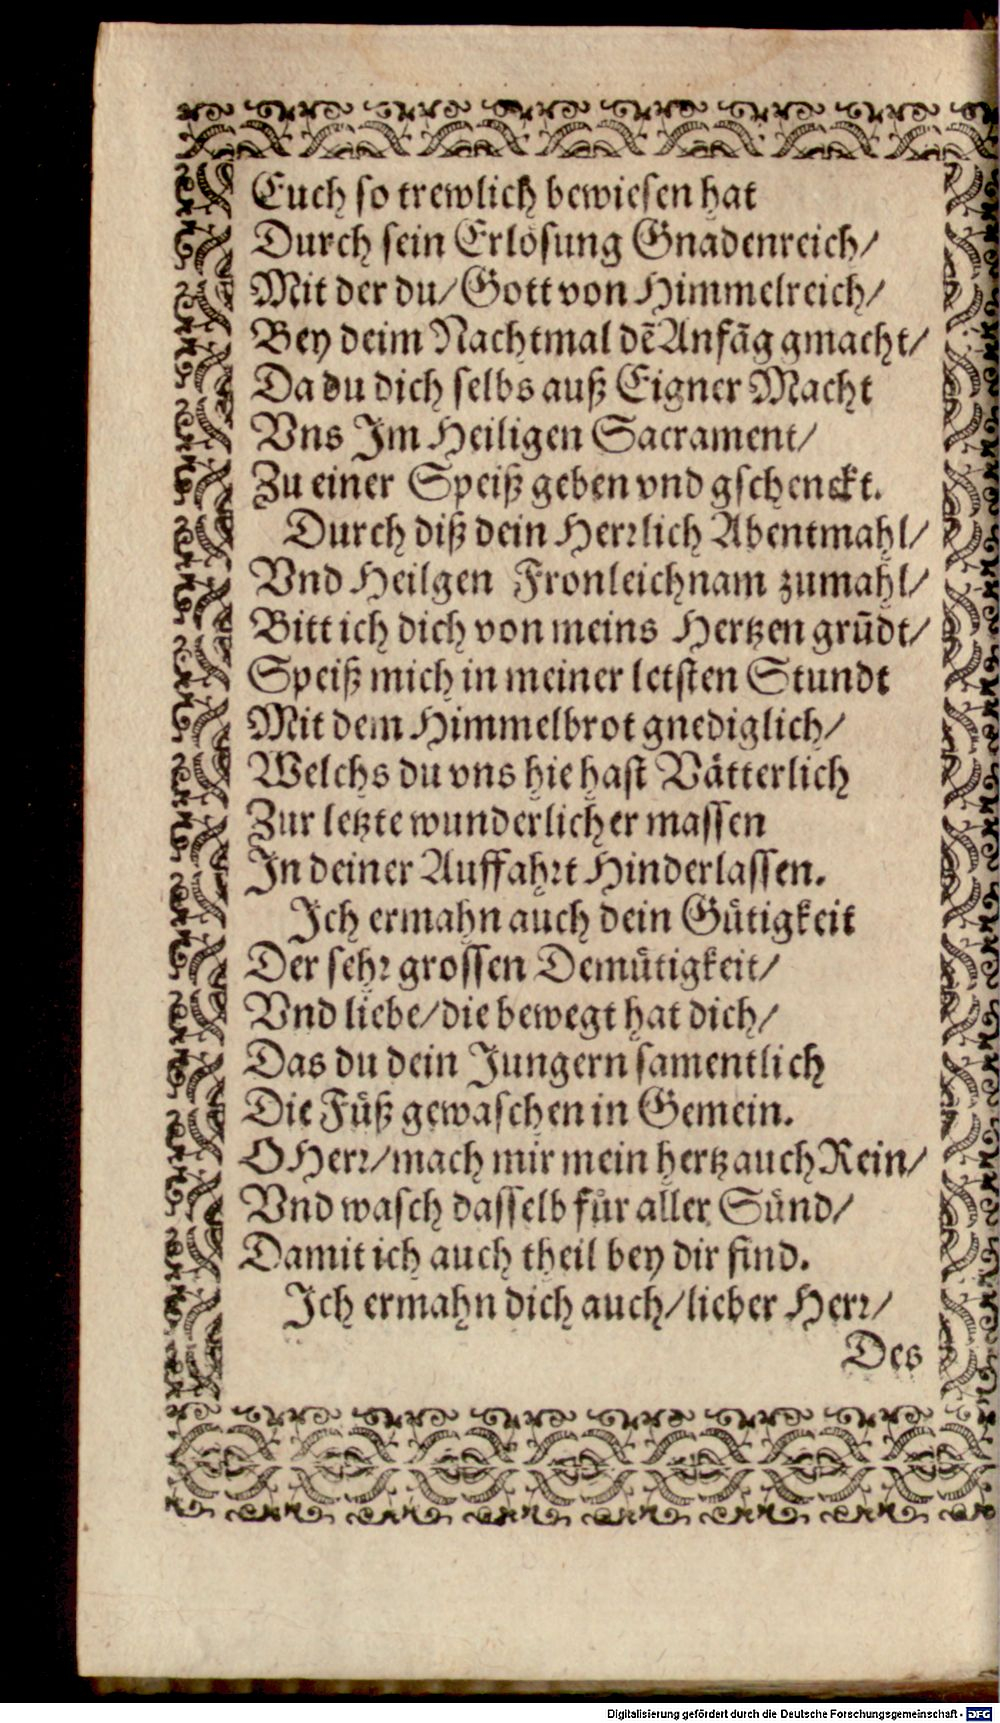 Euch so trewlich bewiesen hat
Durch sein Erlösung Gnadenreich/
Mit der du/ Gott von Himmelreich/
Bey deim Nachtmal dē Anfāg gmacht/
Da du dich selbs auß Eigner Macht
Vns Im Heiligen Sacrament/
Zu einer Speiß geben vnd gschenckt.
Durch diß dein Herrlich Abentmahl/
Vnd Heilgen Fronleichnam zumahl/
Bitt ich dich von meins Hertzen grūdt/
Speiß mich in meiner letsten Stundt
Mit dem Himmelbrot gnediglich/
Welchs du vns hie hast Vätterlich
Zur letzte wunderlicher massen
In deiner Auffahrt Hinderlassen.
Ich ermahn auch dein Gütigkeit
Der sehr grossen Demütigkeit/
Vnd liebe/ die bewegt hat dich/
Das du dein Jungern samentlich
Die Füß gewaschen in Gemein.
O Herr/ mach mir mein hertz auch Rein/
Vnd wasch dasselb für aller Sünd/
Damit ich auch theil bey dir find.
Ich ermahn dich auch/ lieber Herr/
Des
Digitalisierung gefördert durch die Deutsche Forschungsgemeinschaft - DFG